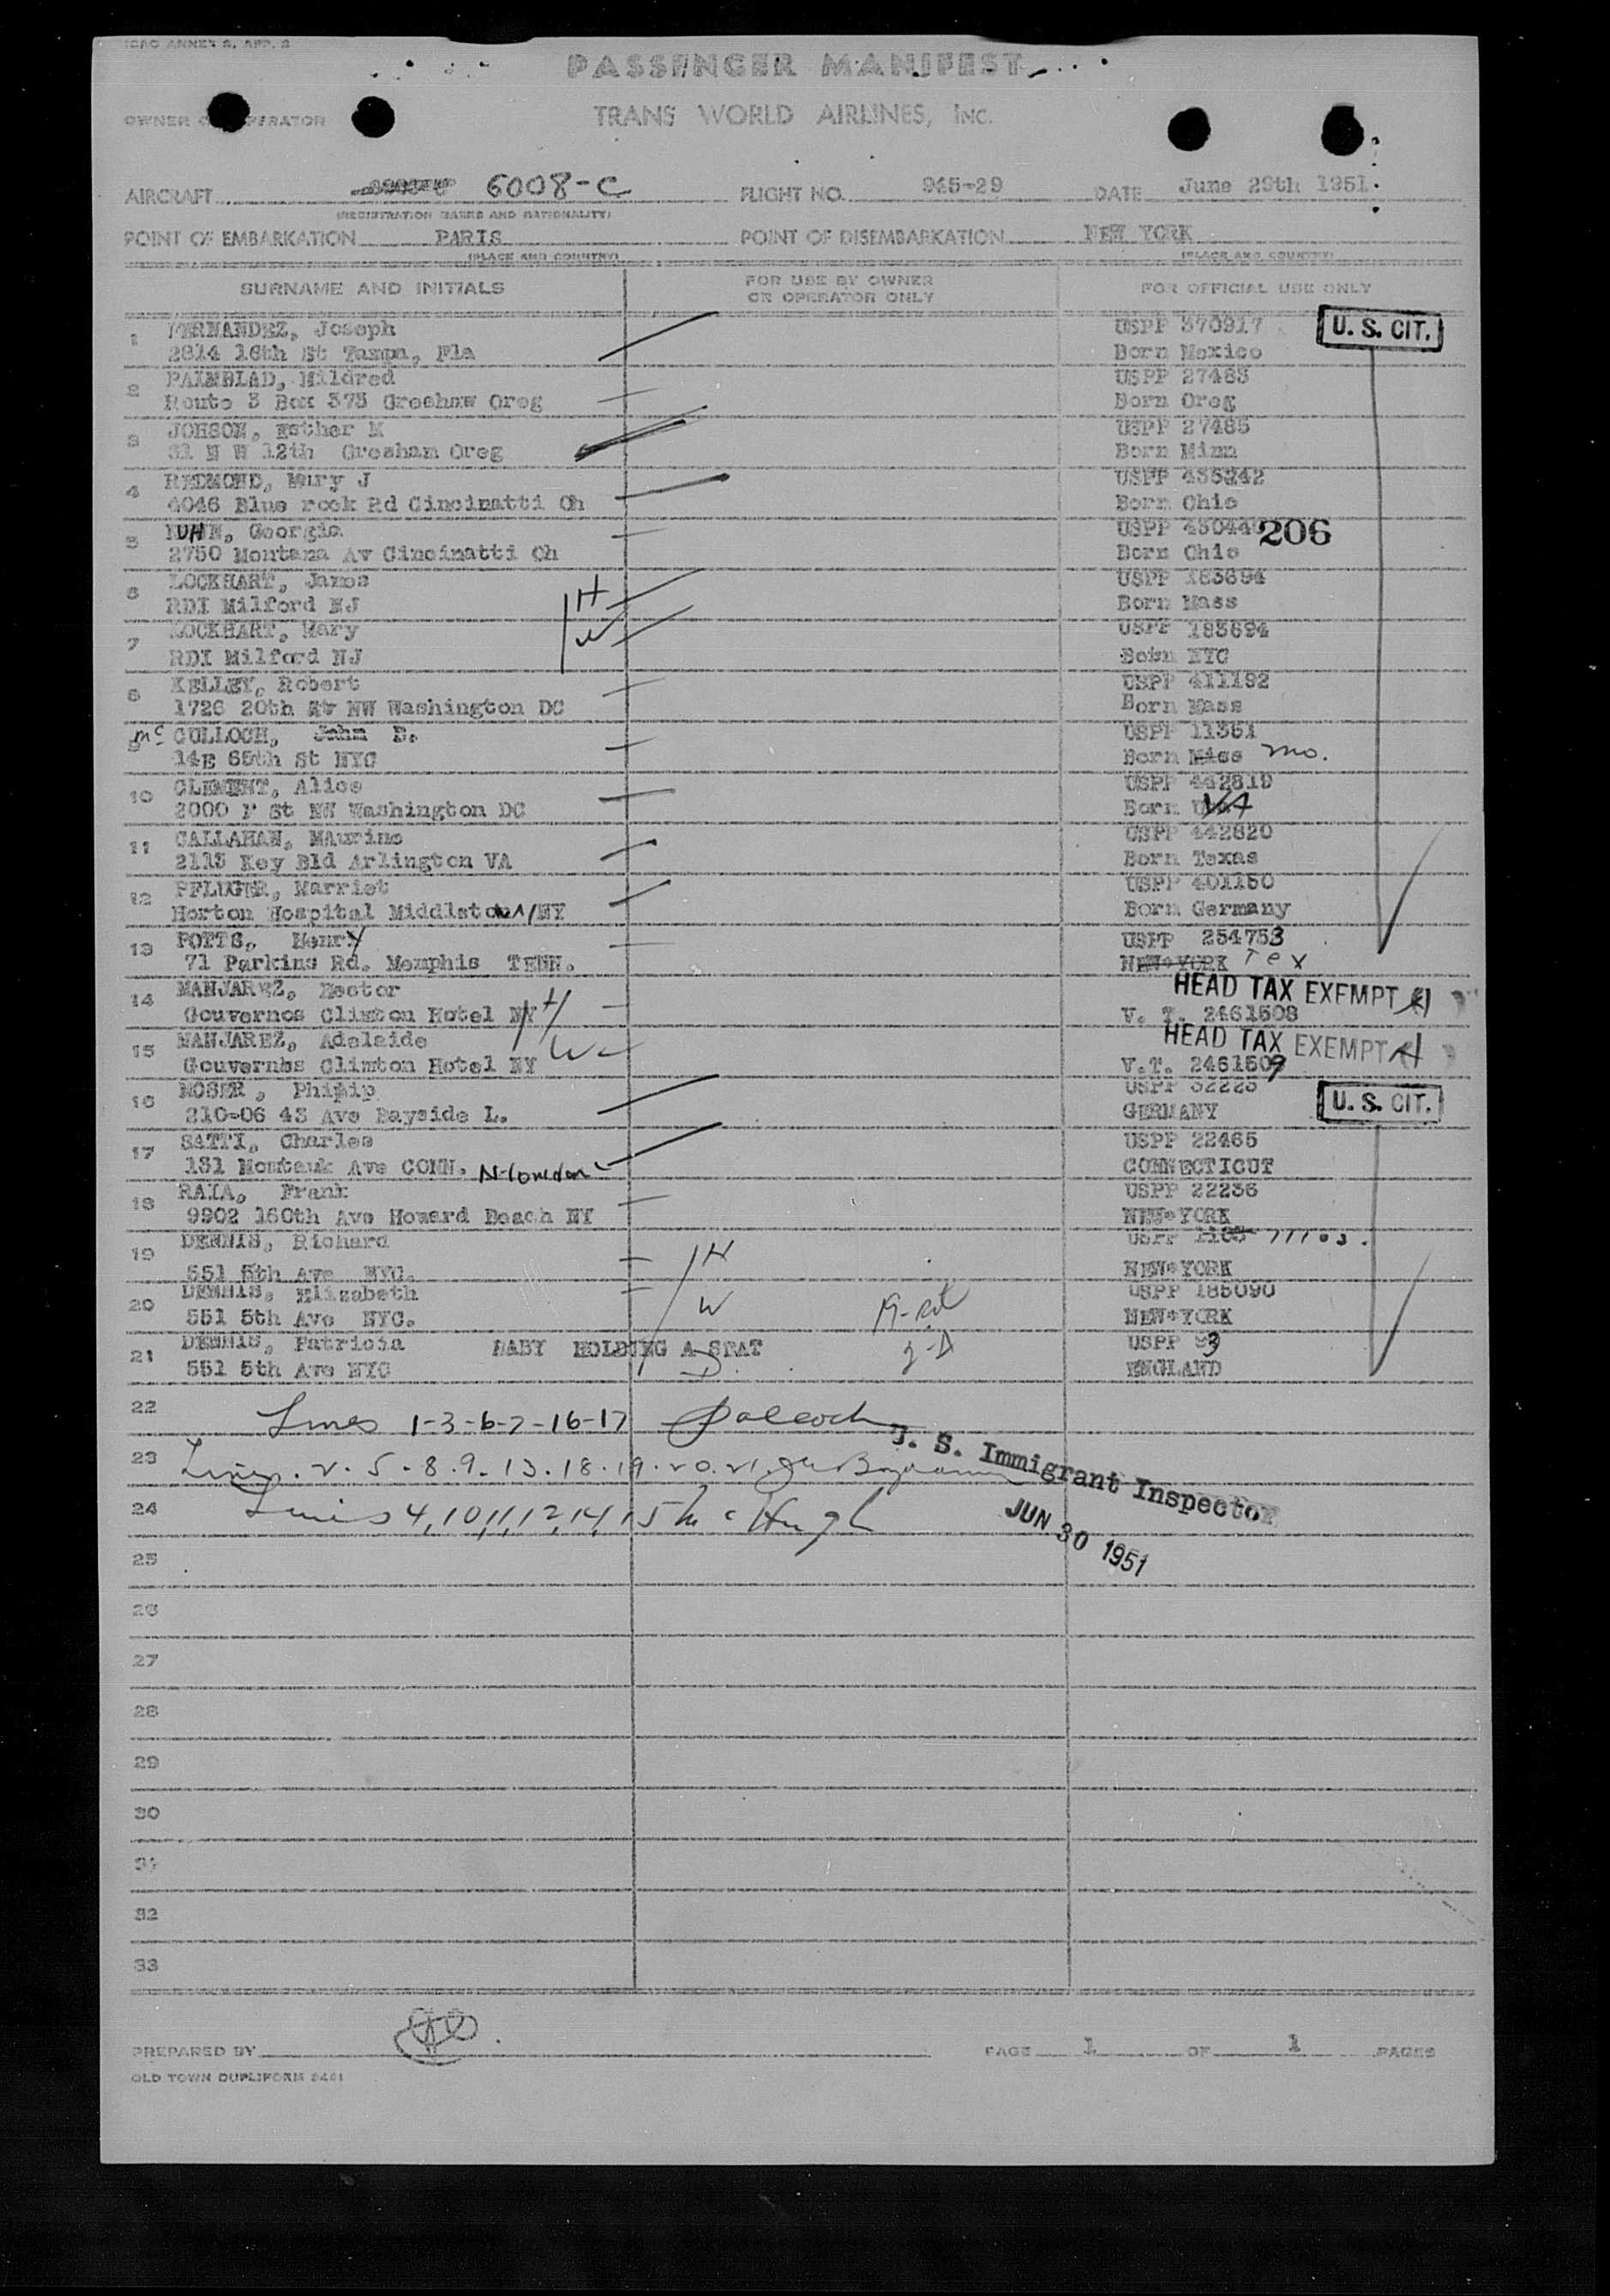 ICAO ANNEX 9, APP. 2
PASSENGER MANIFEST
OWNER OR OPERATOR TRANS WORLD AIRLINES, INC.
AIRCRAFT 6008-C FLIGHT NO. 945-29 DATE June 29th 1951
(REGISTRATION MARKS AND NATIONALITY)
POINT OF EMBARKATION PARIS POINT OF DISEMBARKATION NEW YORK
(PLACE AND COUNTRY) (PLACE AND COUNTRY)
SURNAME AND INITIALS FOR USE BY OWNER OR OPERATOR ONLY FOR OFFICIAL USE ONLY
1 FERNANDEZ, Joseph USPP 370917 U. S. CIT.
2814 16th St Tampa, Fla Born Mexico
2 PALMBLAD, Mildred USPP 27483
Route 3 Box 375 Greshaw Oreg Born Oreg
3 JOHSON, Esther M USPP 27485
31 N W 12th Gresham Oreg Born Minn
4 REDMOND, Mary J USPP 435242
4046 Blue rock Rd Cincinatti Oh Born Ohio
5 Georgia USPP 206
2750 Montana Av Cincinatti Oh Born Ohio
6 LOCKHART, James H USPP 183694
RDI Milford NJ Born Mass
7 LOCKHART, Mary W USPP 183694
RDI Milford NJ Born NYC
8 KELLEY, Robert USPP 411192
1726 20th St NW Washington DC Born Mass
9 Mc CULLOCH, John E. USPP 11351
14E 65th St NYC Born Miss Mo.
10 CLEMENT, Alice USPP 442819
2000 F St NW Washington DC Born VA
11 CALLAHAN, MAurine USPP 442820
2113 Key Bld Arlington VA Born Texas
12 PFLUGER, Harriet USPP 401150
Horton Hospital Middletown/NY Born Germany
13 POTTS, Henry USPP 254753
71 Parkins Rd. Memphis TENN. NEW*YORK Tex
14 MANJAREZ, Hector H HEAD TAX EXEMPT
Gouvernos Clinton Hotel NY V. T. 2461508
15 MANJAREZ, Adelaide W HEAD TAX EXEMPT
Gouvernos Clinton Hotel NY V.T. 2461509
16 MOSER, Philip USPP 32223 U. S. CIT.
210-06 43 Ave Bayside L. GERMANY
17 SATTI, Charles USPP 22465
131 Montauk Ave CONN. N-London CONNECTICUT
18 RAIA, Frank USPP 22236
9902 160th Ave Howard Beach NY NEW*YORK
19 DENNIS, Richard H USPP
551 5th Ave NYC. NEW*YORK
20 DENNIS, Elizabeth W USPP 185090
551 5th Ave NYC. NEW*YORK
21 DENNIS, Patricia BABY HOLDING A SEAT USPP 93
551 5th Ave NYC ENGLAND
22 Lines 1-3-6-7-16-17
23 Lines. 2. 5. 8. 9. 13. 18. 19. 20. 21. U. S. Immigrant Inspector
24 Lines 4,10,11,12,14,15 McHugh JUN 30 1951
25
26
27
28
29
30
31
32
33
PREPARED BY PAGE 1 OF 1 PAGES
OLD TOWN DUPLIFORM 9461